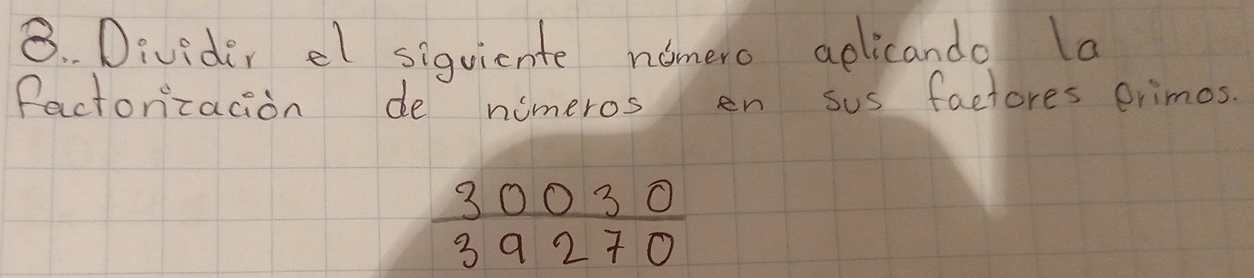 8.. Dividir el siguiente número aplicando la
factorización de números en sus factores primos.
30030
39270